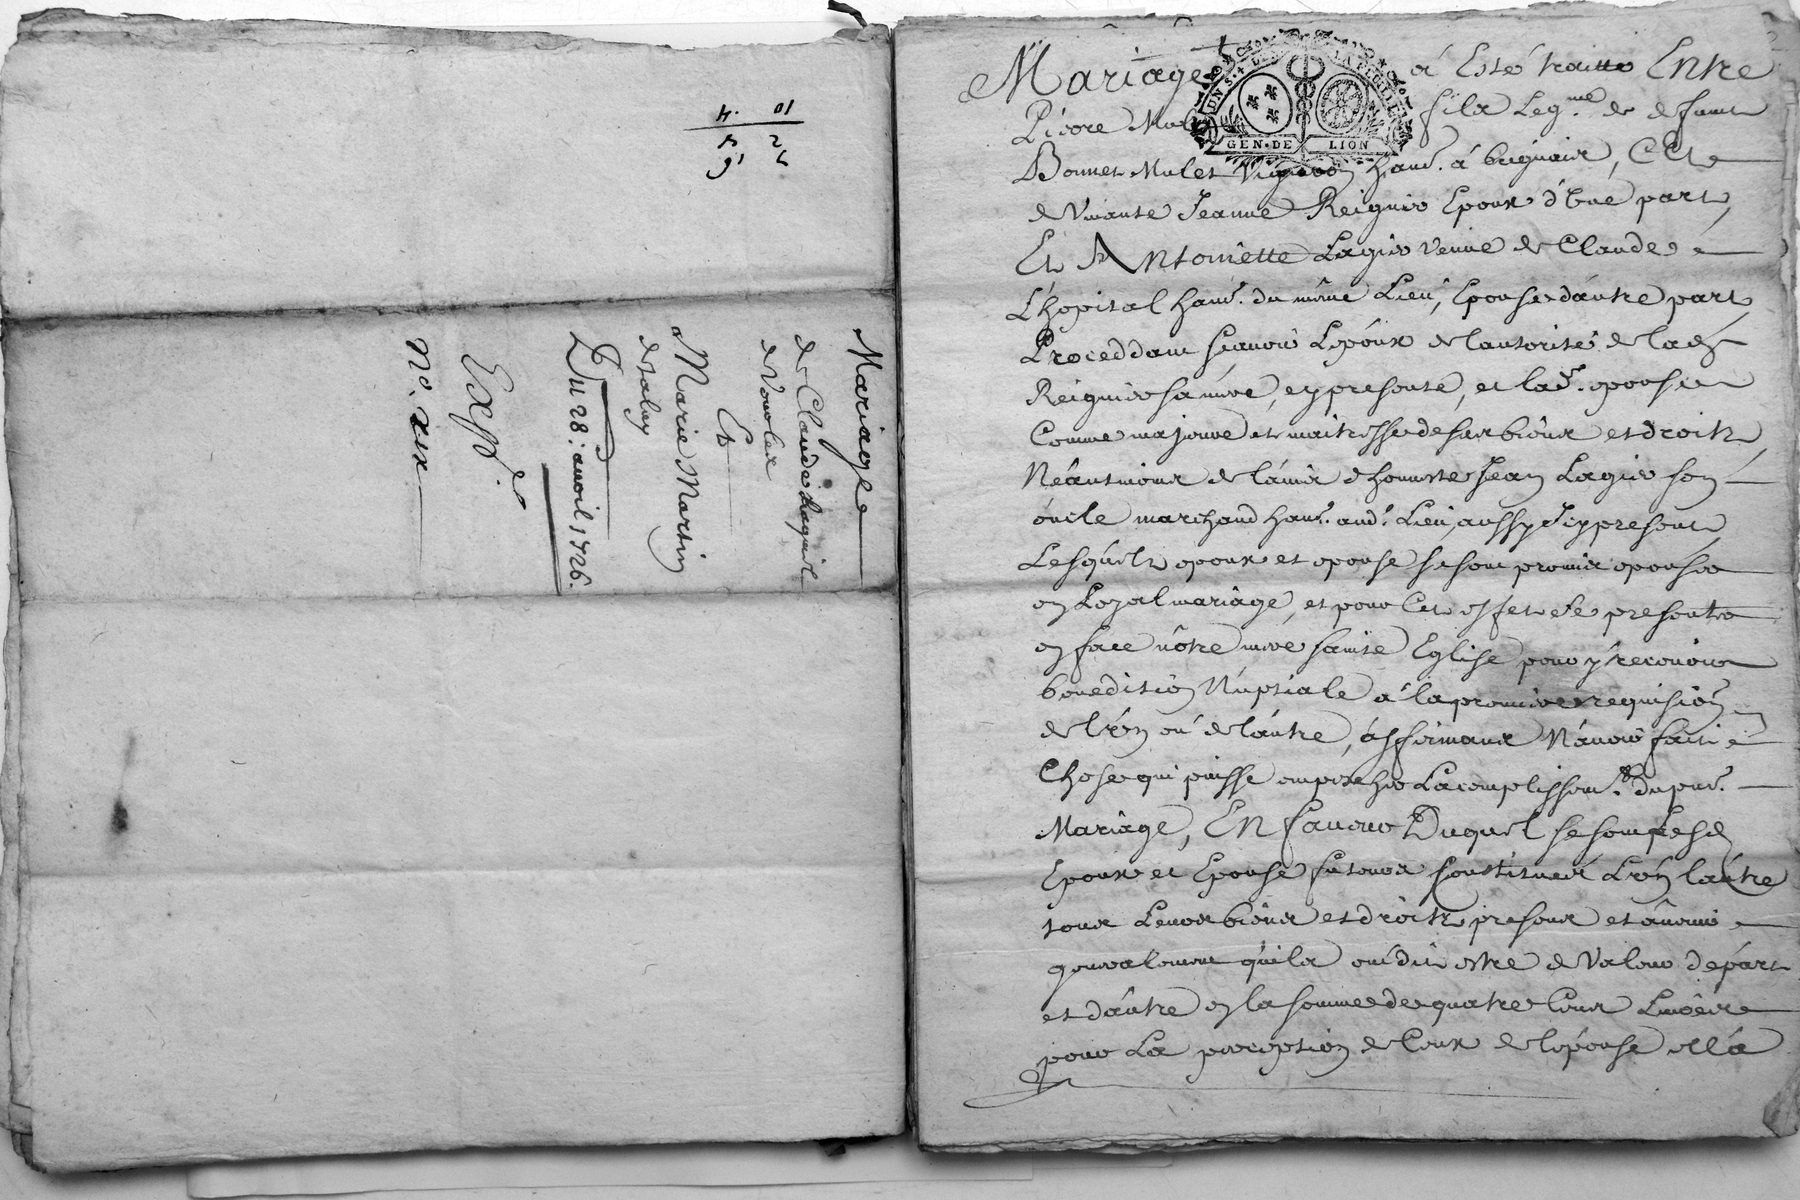 Mariage
de Claude
Et
Marie Martin
Du 28: auril 1726.
Expe.
No.
Mariage à Esté traitté Entre
Pierre Mulet fils Leg.me de deffunt
Bonnet Mulet Vigneron hant. à brignais, Et
de viuante Jeanne Reignier Epoux d'Vne part,
Et Antoinette Lagier veuue de Claude
L'hopital hant. du même Lieu, Epouse d'autre part
Proceddant sçauoir L'epoux de l'autorité de lade
Reignier sa mere, cy presente, et lad. epouse
Comme majeure et maitresse de ses biens et droits
Neantmoins de l'auis d'honneste Jean Lagier son
oncle marchand hant. aud. Lieu, aussy Icy present
Lesquels epoux et epouse se sont promis epouser
en Loyal mariage, et pour Cet effet se presenter
en face nôtre mere sainte Eglise pour y receuoir
benediction Nuptiale à la premiere requision
de l'vn ou de l'autre, affirmans N'auoir fait
Chose qui puisse empecher L'acomplissemt. du pnt.
Mariage, EN faueur Duquel se sont Lesd
Epoux et Epouse futeurs Constitués L'vn l'autre
tous Leurs biens et droits presens et auenir
generalement qu'ils ont dit estre de Valeur de part
et d'autre en la somme de quatre Cens Liures
pour La perception de Ceux de l'epouse ella
GEN·DE LION